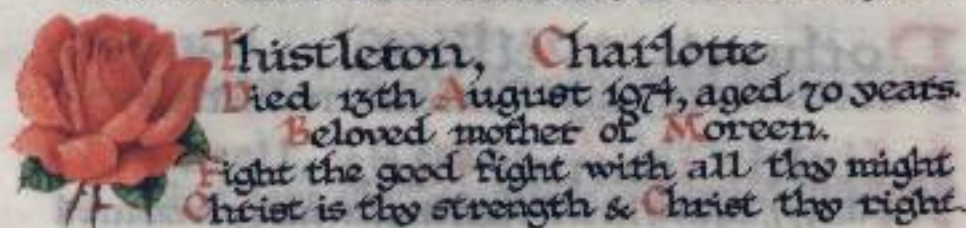 Thistleton, Charlotte
Died 13th August 1974, aged 70 years.
Beloved mother of Moreen.
Fight the good fight with all thy might
Christ is thy strength & Christ thy right.